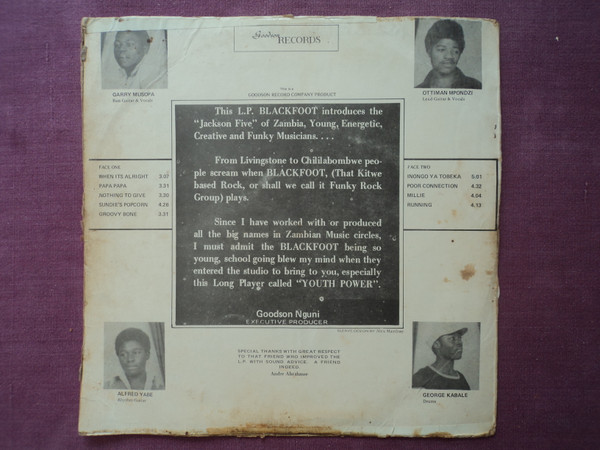 Goodson RECORDS
This is a
GOODSON RECORD COMPANY PRODUCT
GARRY MUSOPA
Bass Guitar & Vocals
OTTIMAN MPONDZI
Lead Guitar & Vocals
This L.P. BLACKFOOT introduces the
"Jackson Five" of Zambia, Young, Energetic,
Creative and Funky Musicians. . . .
From Livingstone to Chililabombwe peo-
ple scream when BLACKFOOT, (That Kitwe
based Rock, or shall we call it Funky Rock
Group) plays.
Since I have worked with or produced
all the big names in Zambian Music circles,
I must admit the BLACKFOOT being so
young, school going blew my mind when they
entered the studio to bring to you, especially
this Long Player called "YOUTH POWER".
Goodson Nguni
EXECUTIVE PRODUCER
FACE ONE
WHEN ITS ALRIGHT 3.07
PAPA PAPA 3.21
NOTHING TO GIVE 3.30
SUNGIE'S POPCORN 4.26
GROOVY BONE 3.21
FACE TWO
INONGO YA TOBEKA 5.01
POOR CONNECTION 4.32
MILLIE 4.04
RUNNING 4.13
SPECIAL THANKS WITH GREAT RESPECT
TO THAT FRIEND WHO IMPROVED THE
L.P. WITH SOUND ADVICE. A FRIEND
INDEED
Andre Abrahamse
ALFRED YABE
GEORGE KABALE
Drums